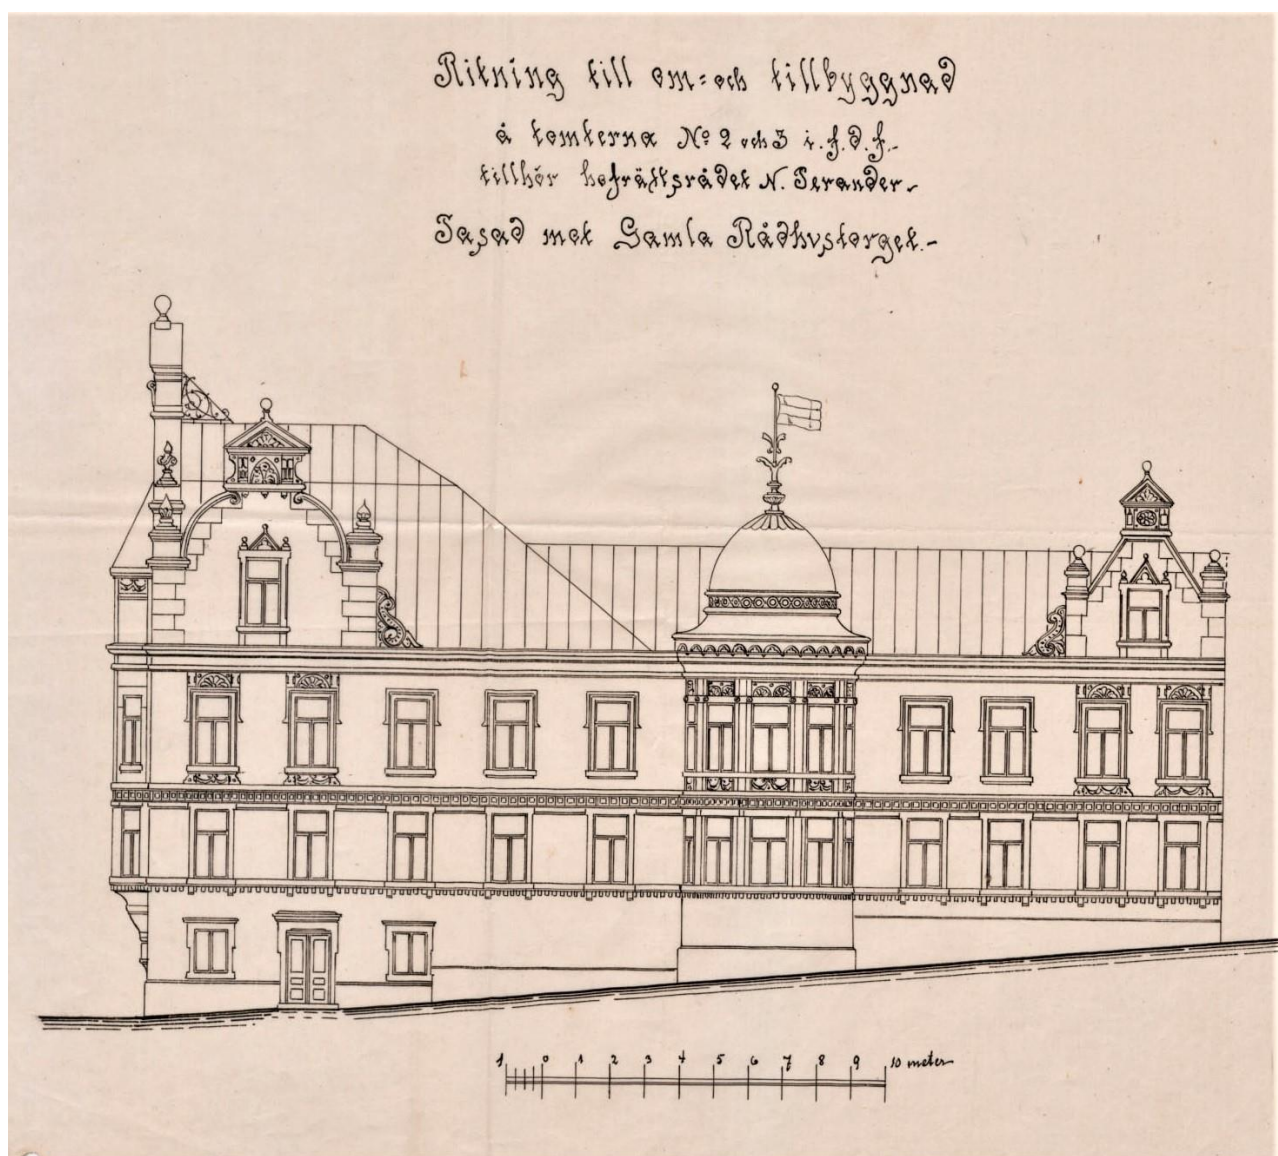 Ritning till om= och tillbyggnad
å tomterna No 2 och 3 i. f. d. f.-
tillhör hofrättsrådet N. Serander.-
Fasad mot Gamla Rådhustorget.-
1 0 1 2 3 4 5 6 7 8 9 10 meter